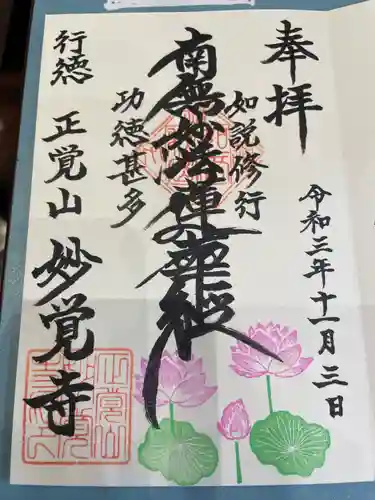 奉拝
令和三年十一月三日
如説修行
南無妙法蓮華経
功徳甚多
行徳 正覚山 妙覚寺